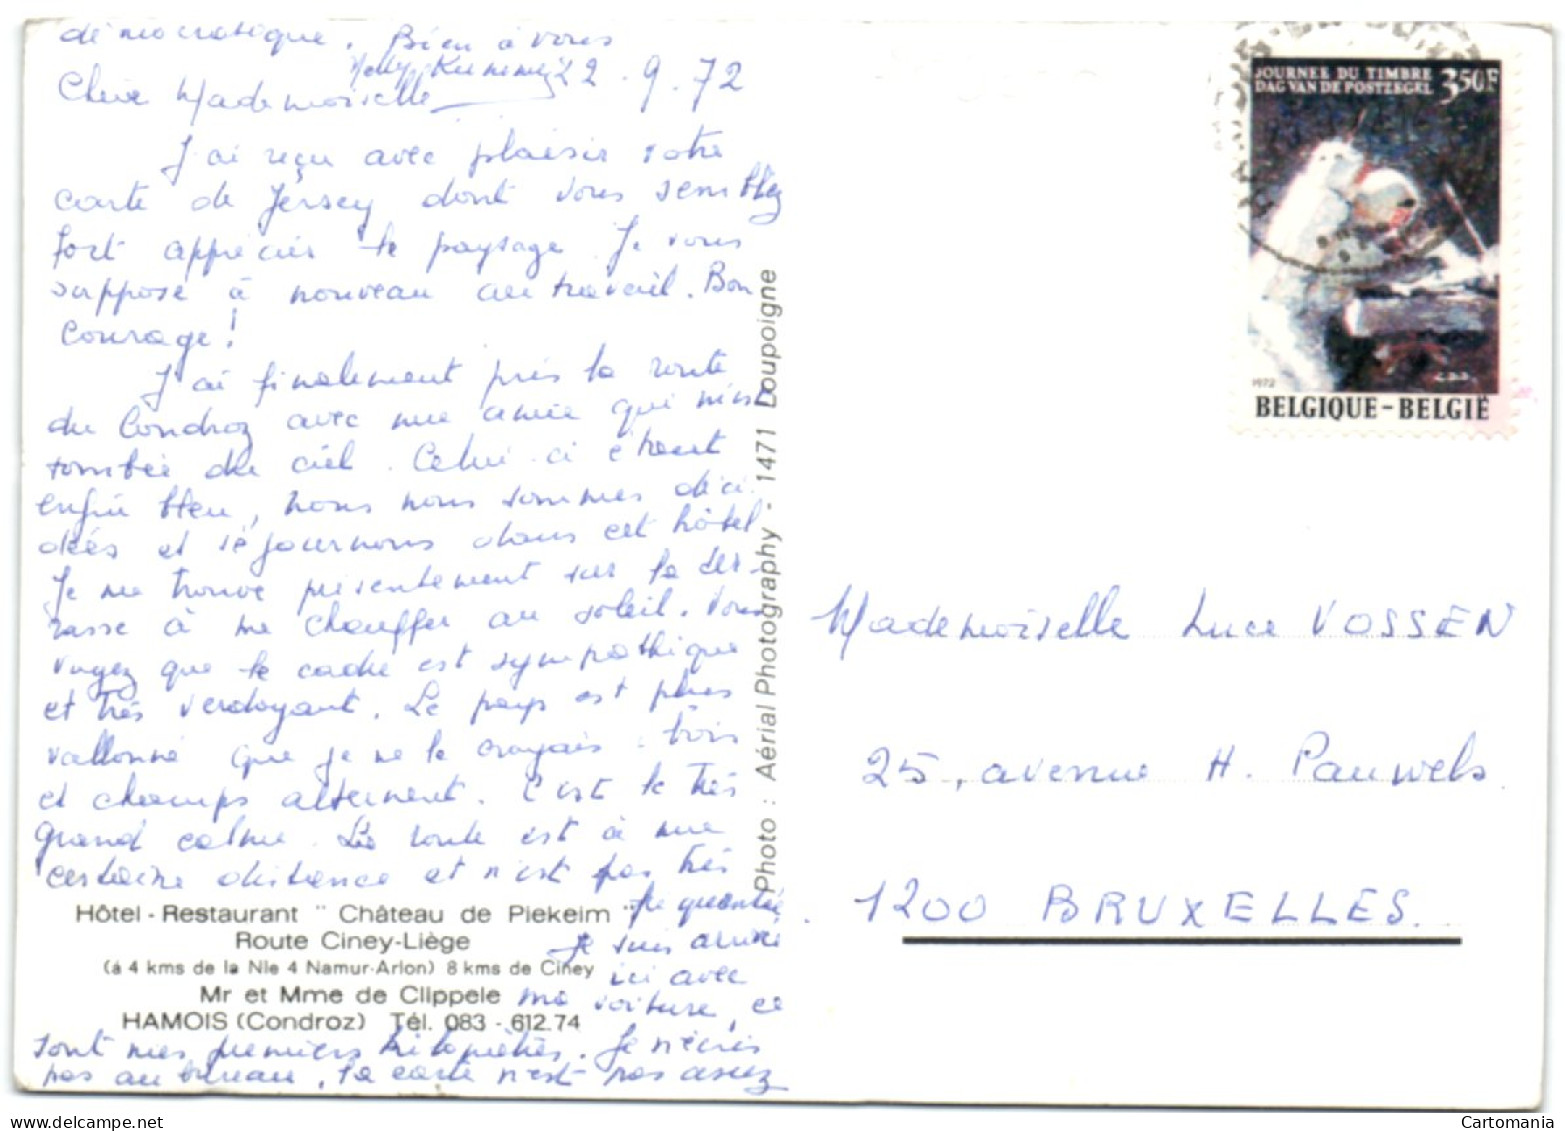 démocratique. Bien à vous
Nelly
22.9.72
Chère Mademoiselle
J'ai reçu avec plaisir votre
carte de Jersey dont vous semblez
fort apprécier le paysage. Je vous
suppose à nouveau au travail. Bon
courage!
J'ai finalement pris la route
du Condroz avec une amie qui m'est
tombée du ciel. Celui-ci étant
enfin bleu, nous nous sommes déci
dées et séjournons dans cet hôtel
Je me trouve présentement sur la ter-
rasse à me chauffer au soleil. Vous
voyez que le cadre est sympathique
et très verdoyant. Le pays est plus
vallonné que je ne le croyais. bois
et champs alternent. C'est le très
grand calme. La route est à une
certaine distance et n'est pas très
fréquentée.
Je suis arrivée
ici avec
ma voiture, ce
sont mes premiers kilomètres. Je n'écris
pas au bureau, la carte n'est pas assez
Hôtel - Restaurant " Château de Piekeim "
Route Ciney-Liège
(à 4 kms de la Nle 4 Namur-Arlon) 8 kms de Ciney
Mr et Mme de Clippele
HAMOIS (Condroz) Tél. 083 - 612.74
Photo : Aérial Photography - 1471 Loupoigne
JOURNEE DU TIMBRE
DAG VAN DE POSTZEGEL 3,50F
1972
BELGIQUE - BELGIË
Mademoiselle Luce VOSSEN
25, avenue H. Pauwels.
1200 BRUXELLES.
Cartomania
delcampe.net